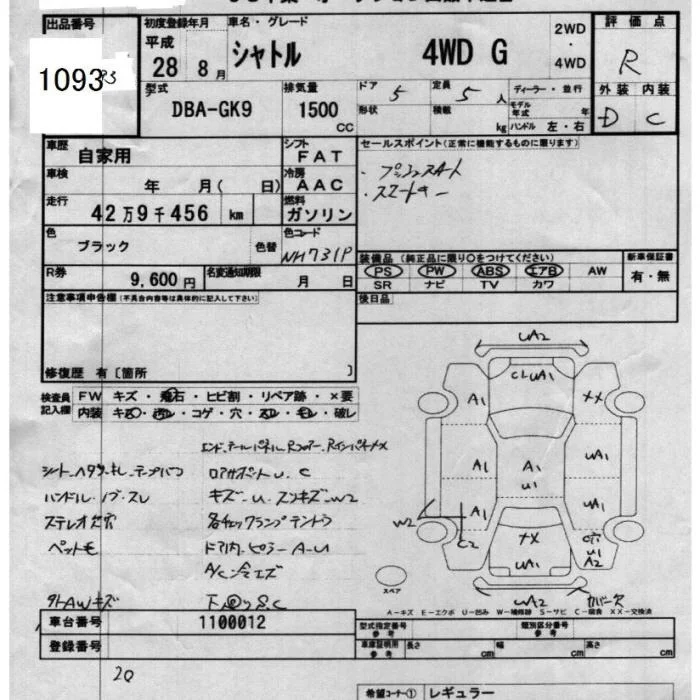 出品番号
10935
初度登録年月
平成
28 8月
車名・グレード
シャトル 4WD G
2WD
・
4WD
評価点
R
外装 内装
D C
型式
DBA-GK9
排気量
1500
CC
ドア 5
定員 5 人
形状
積載 kg
ディーラー・並行
モデル年式 年
ハンドル 左・右
車歴
自家用
シフト
FAT
車検
年 月( 日)
冷房
AAC
走行
42万9千456 km
燃料
ガソリン
色
ブラック
色替
色コード
NH731P
R券
9,600円
名変通知期限
月 日
セールスポイント(正常に機能するものに限ります)
・プッシュスタート
・スマートキー
装備品 (純正品に限り○をつけてください)
PS PW ABS エアB AW
SR ナビ TV カワ
新車保証書
有・無
後日品
注意事項申告欄(不具合内容等は具体的に記入して下さい)
修復歴 有〔箇所 〕
検査員
記入欄
FW キズ・飛石・ヒビ割・リペア跡・×要
内装 キズ・汚レ・コゲ・穴・スレ・モレ・破レ
ハンドル・ノブ・スレ
ステレオ欠穴
ペット毛
外AWキズ
キズ・U・スリキズ・W2
ドア内・ピラーA-U
下回りS.C
UA2
CLUA1
A1
XX
A1
A1
U1
UA1
A1
UA1
W2
C2
XX
UA1
穴
U1
A2
WA2
カバー欠
スペア
A-キズ E-エクボ U-凹み W-補修跡 S-サビ C-腐食 XX-交換済
車台番号
1100012
登録番号
型式指定番号
参考
類別区分番号
参考
車庫証明用
参考
長さ cm
幅 cm
高さ cm
20
希望コーナー①
レギュラー